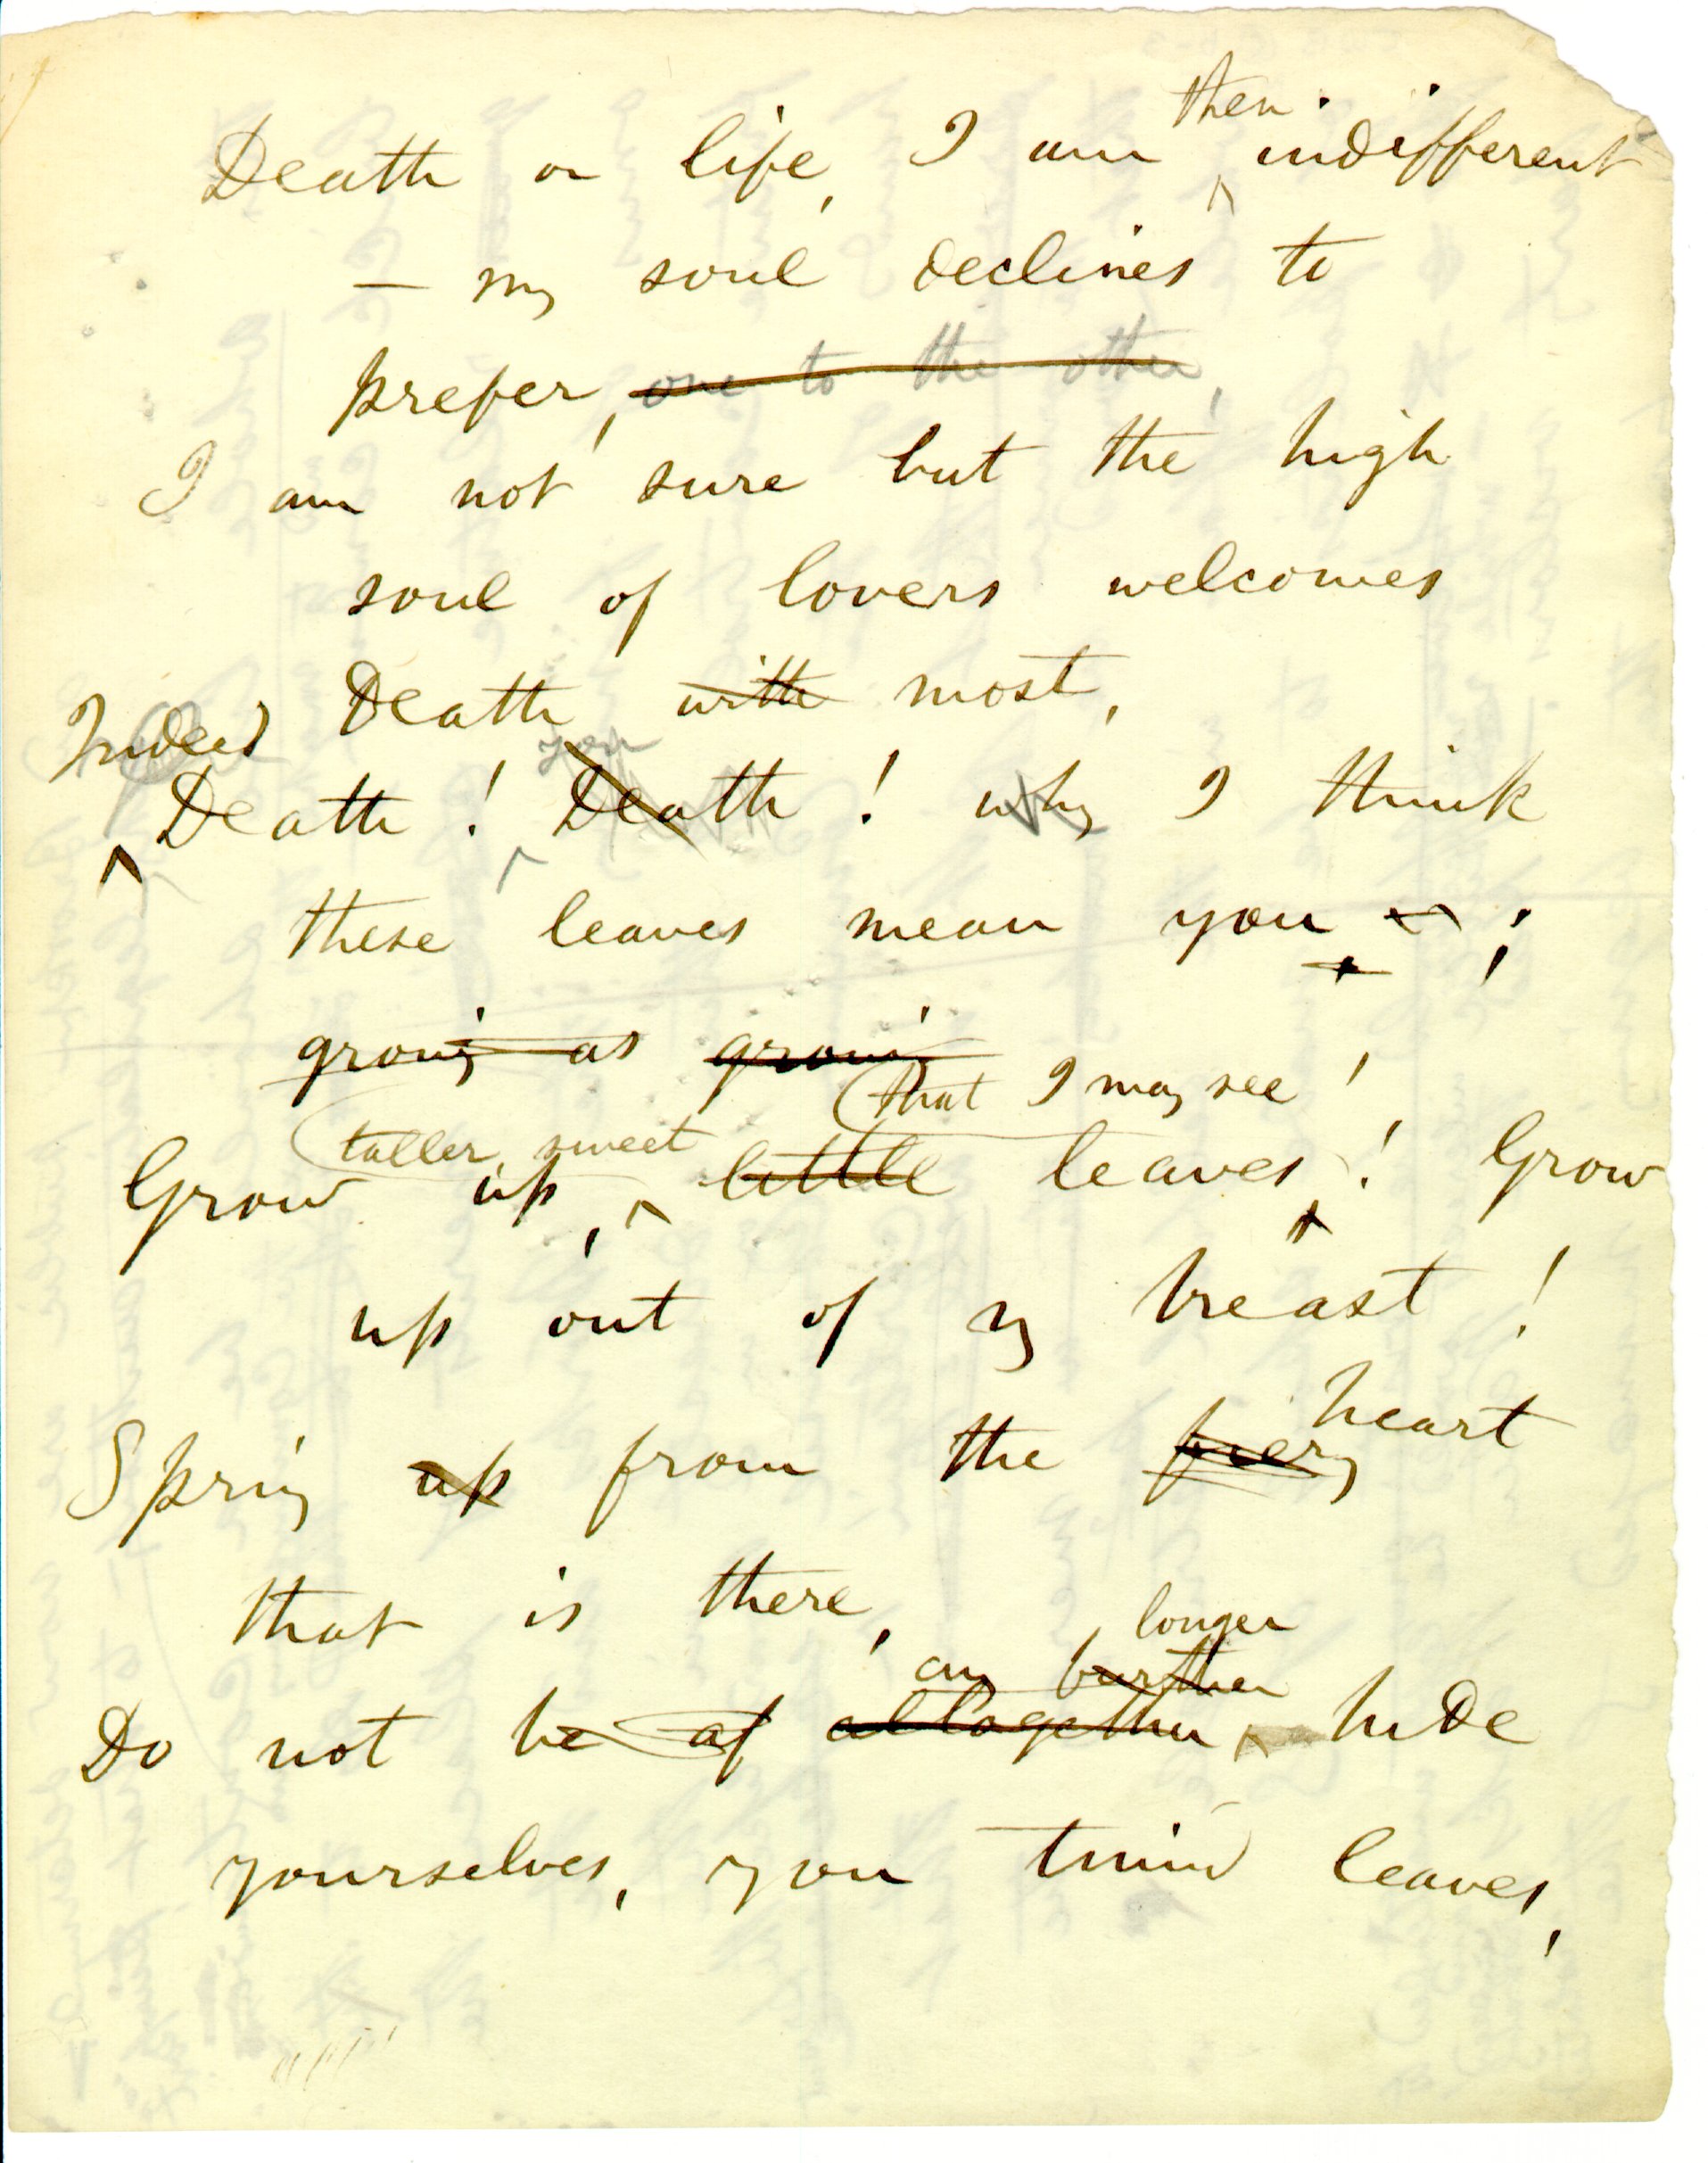 then
Death or life, I am indifferent
— my soul declines to
prefer, one to the other,
I am not sure but the high
soul of lovers welcomes
Death with most,
Indeed you
Death! Death! why I think
these leaves mean you;
growing as growing
that I may see!
taller, sweet
Grow up, little leaves! Grow
up out of my breast!
heart
Spring up from the
that is there,
longer
any further
Do not be af altogether hide
yourselves, you timid leaves,